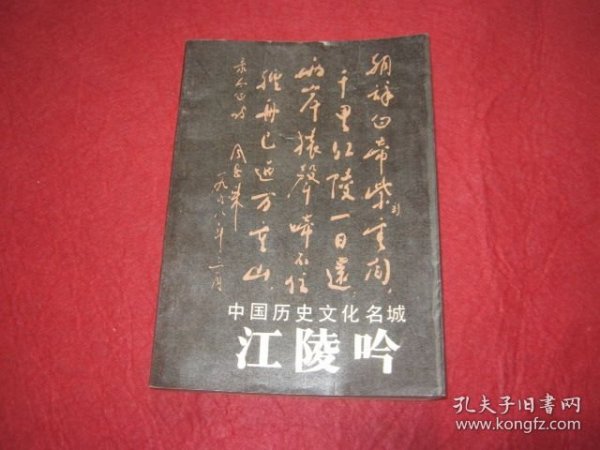 朝辞白帝彩云间，
千里江陵一日還。
两岸猿聲啼不住，
轻舟已过万重山。
周恩来
一九五八年三月
中国历史文化名城
江陵吟
孔夫子旧书网
www.kongfz.com